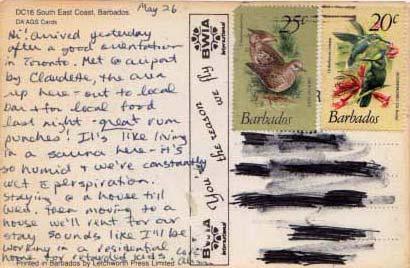 DC16 South East Coast, Barbados.
DA AGS Cards
May 26
Hi! Arrived yesterday
after a good orientation
in Toronto. Met @ airport
by Claudette, the area
rep here - out to local
bar + for local food
last night - great rum
punches! It's like living
in a sauna here - it's
so humid & we're constantly
wet & perspiration.
Staying @ a house till
Wed. then moving to a
house we'll rent for our
stay. Sounds like I'll be
working in a residential
home for retarded kids.
Printed in Barbados by Letchworth Press Limited
BWIA
International
You're the reason we fly
BWIA
International
25c
Barbados
20c
Barbados